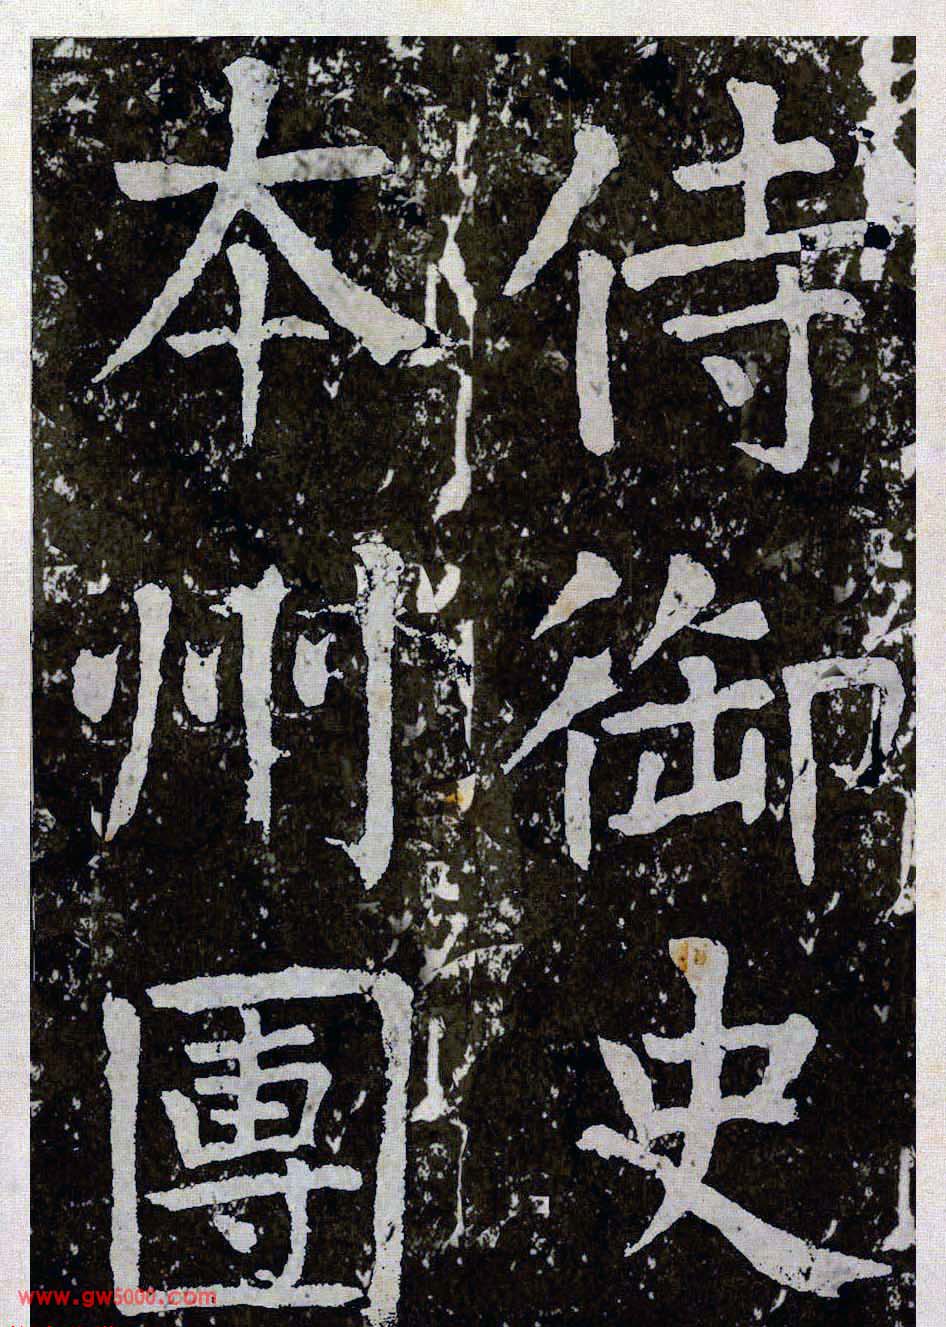 侍御史
本州團
www.gw5000.com